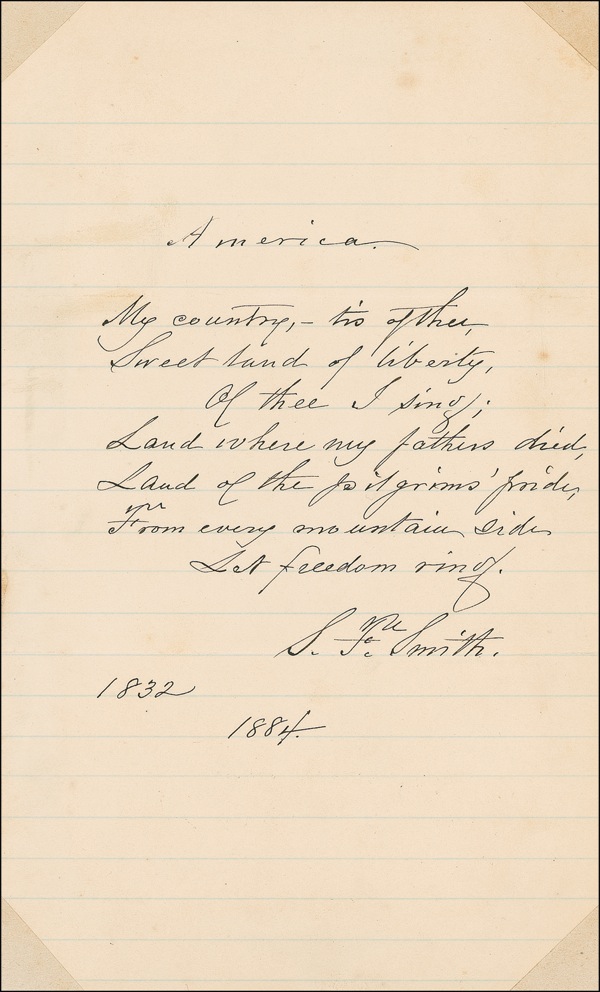 America.
My country,– tis of thee,
Sweet land of liberty,
Of thee I sing;
Land where my fathers died,
Land of the pilgrims' pride,
From every mountain side
Let freedom ring.
S. F. Smith.
1832
1884.